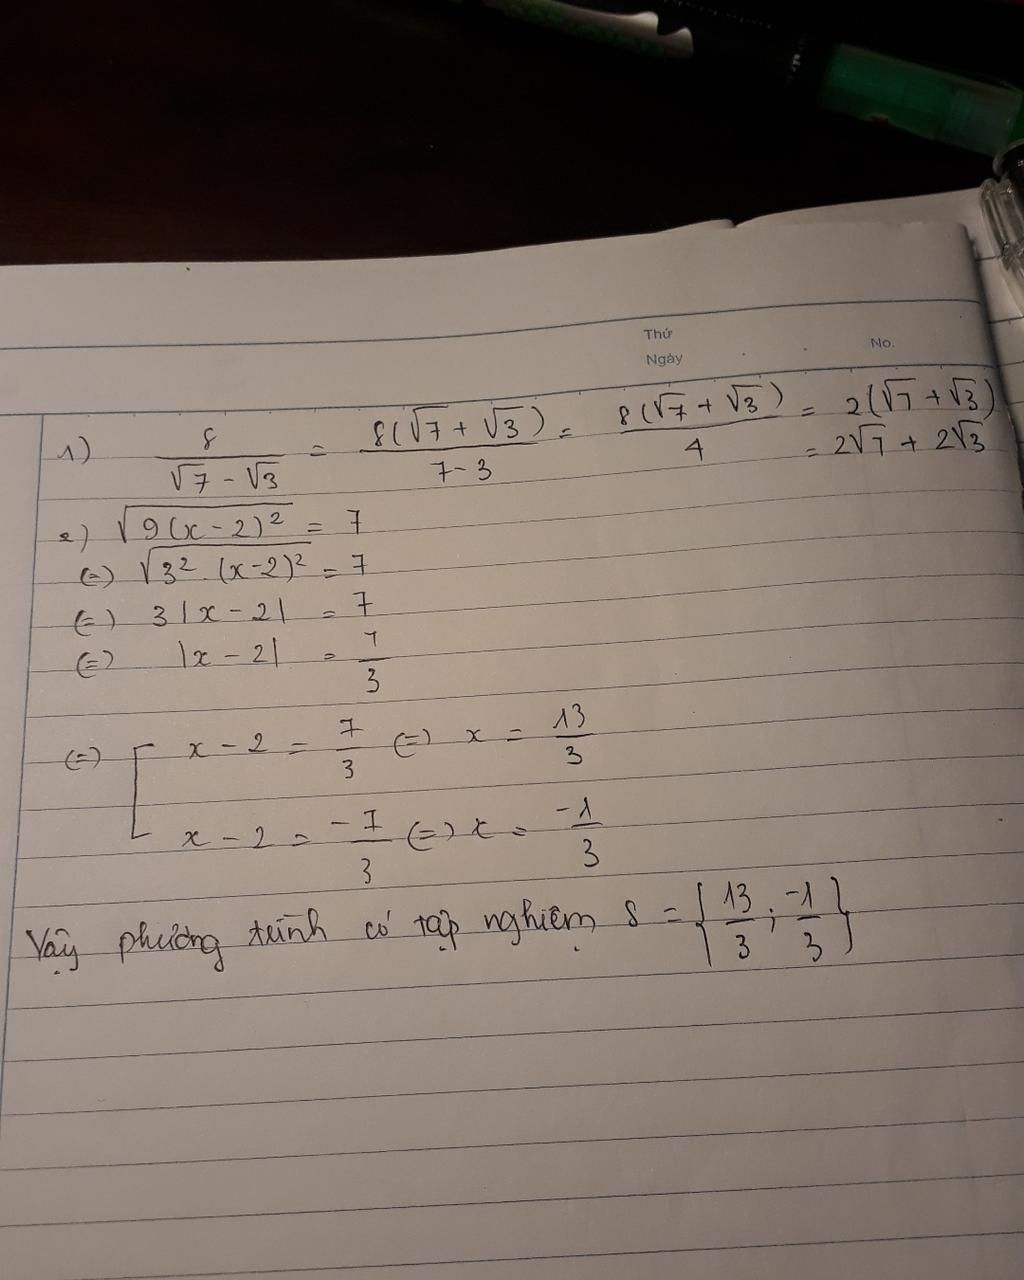 Thứ
Ngày
No.
1) 8/(√7 - √3) = 8(√7 + √3)/(7-3) = 8(√7 + √3)/4 = 2(√7 + √3)
= 2√7 + 2√3
2) √(9(x-2)²) = 7
(=) √(3².(x-2)²) = 7
(=) 3|x-2| = 7
(=) |x-2| = 7/3
(=) [ x-2 = 7/3 (=) x = 13/3
x-2 = -7/3 (=) x = -1/3
Vậy phương trình có tập nghiệm S = {13/3; -1/3}